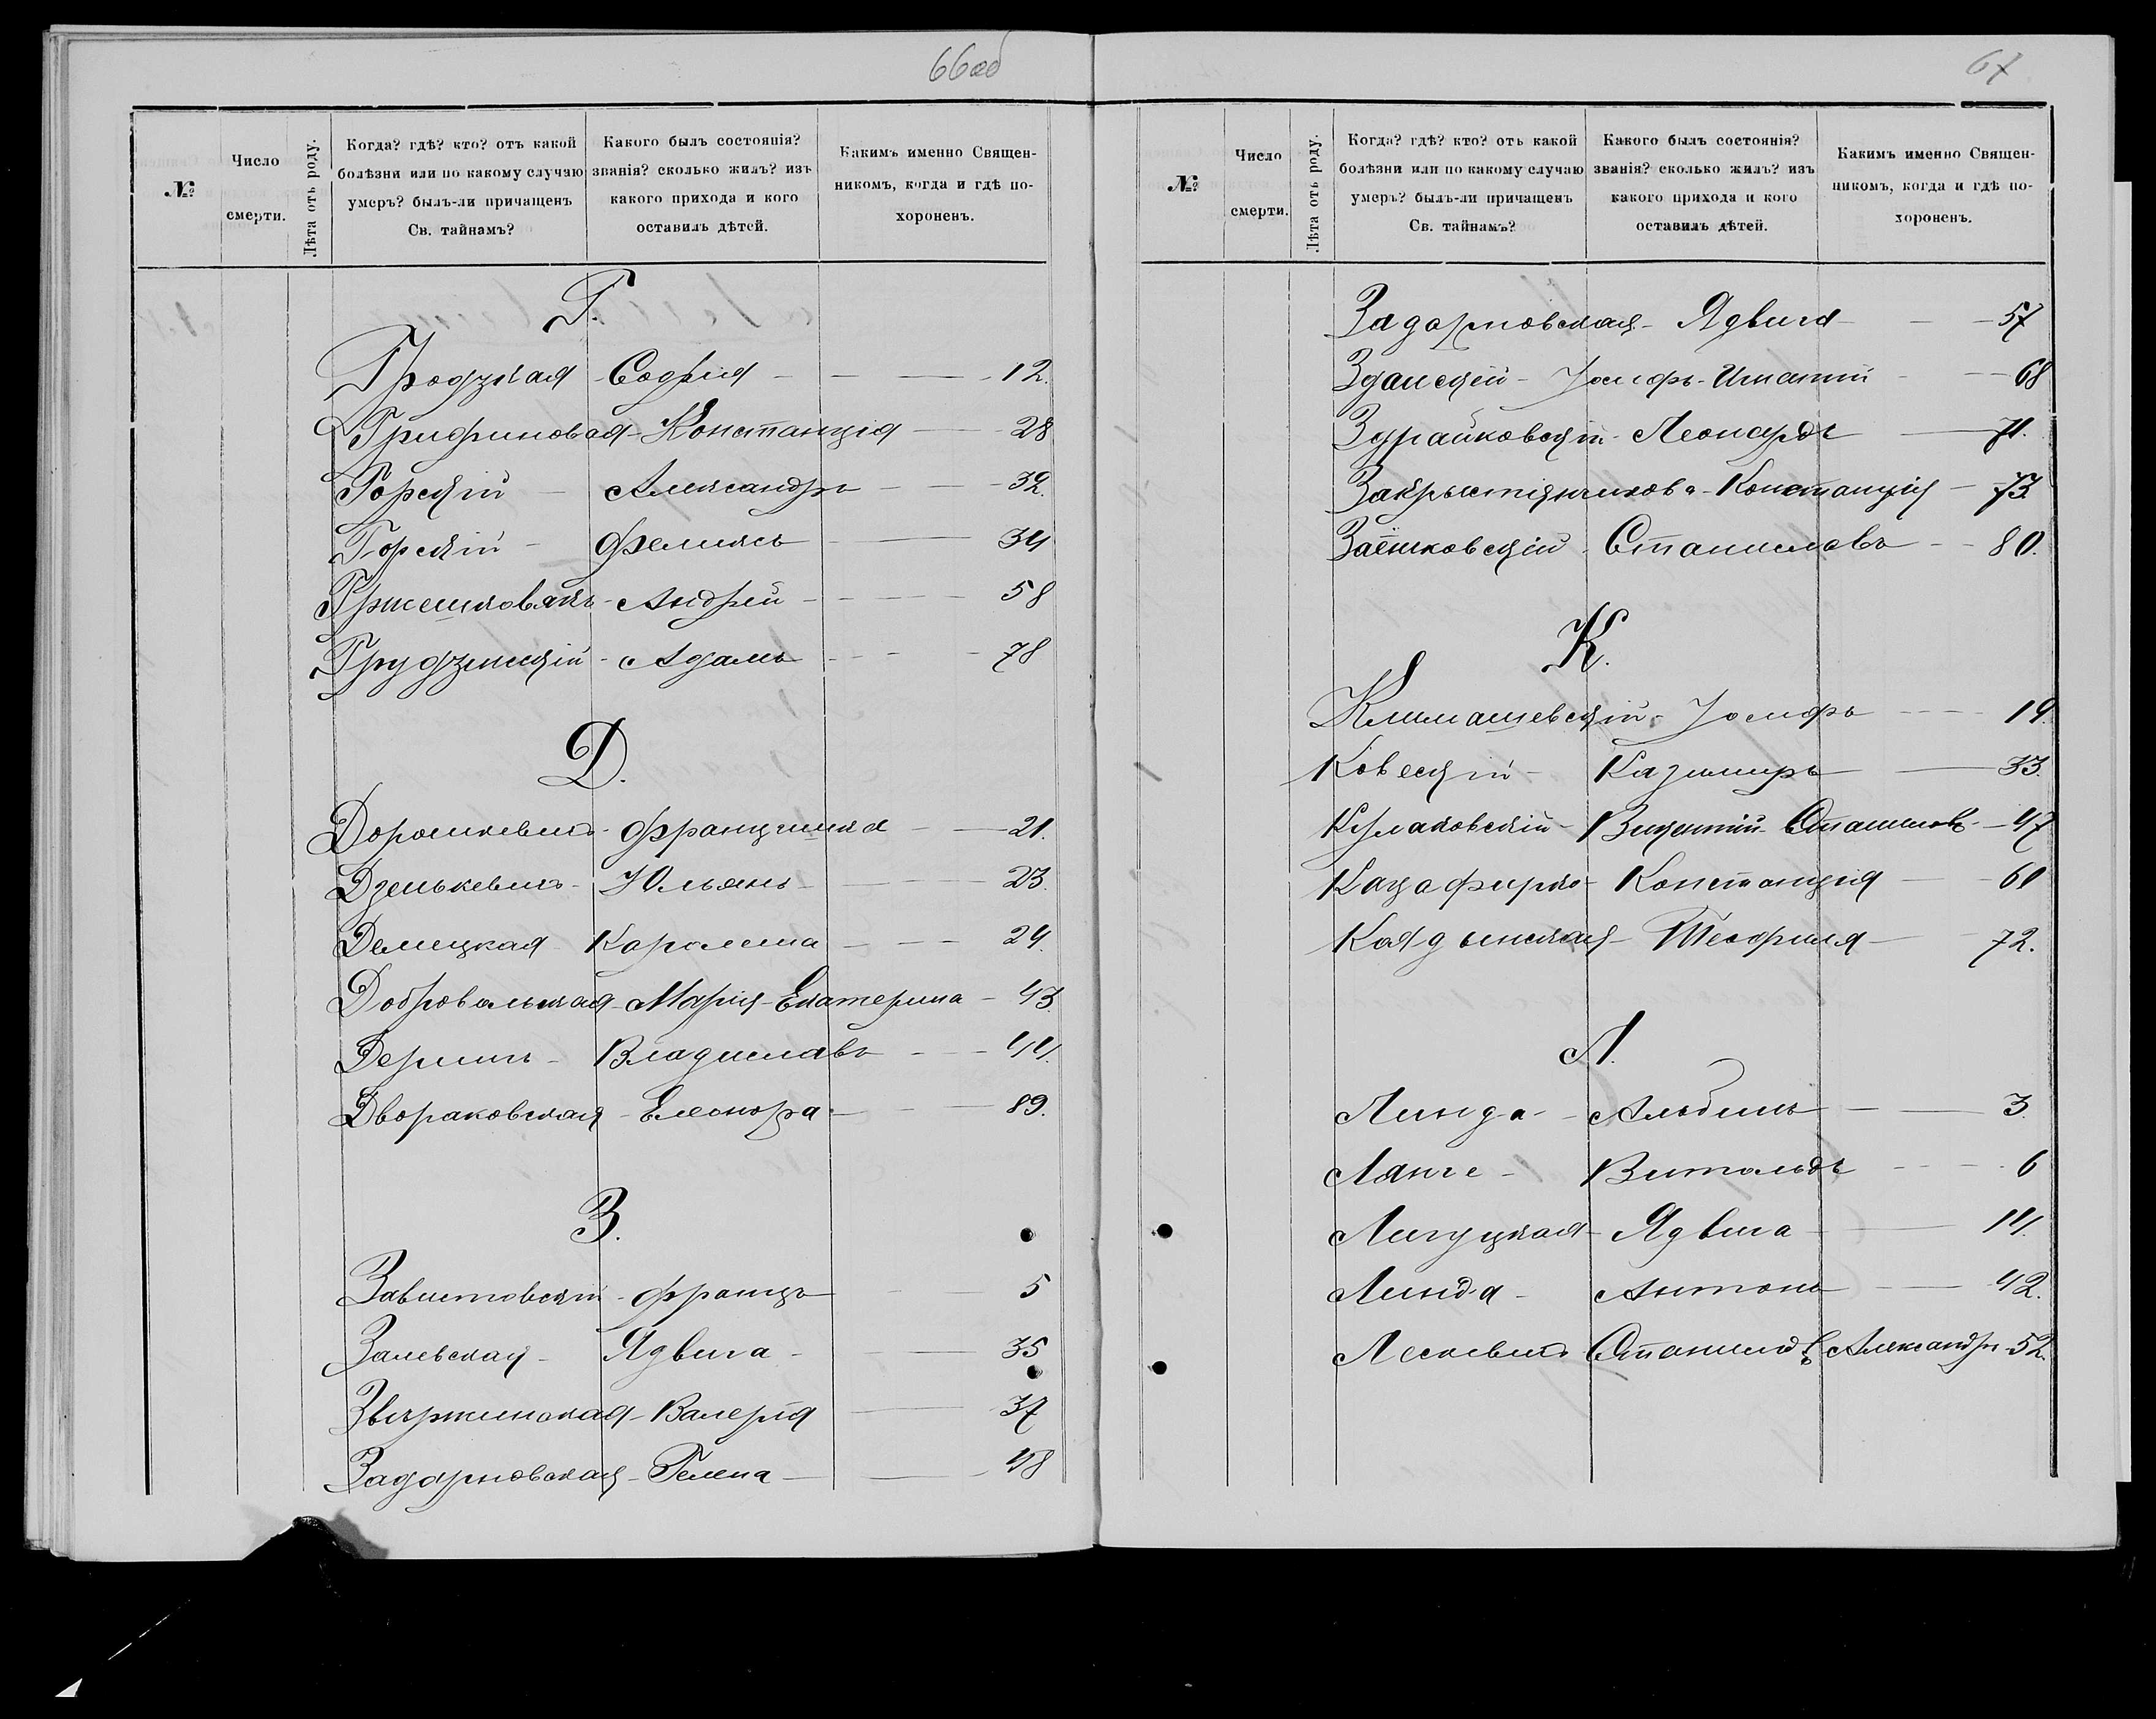 66об
№
Число смерти.
Лѣта отъ роду.
Когда? гдѣ? кто? отъ какой болѣзни или по какому случаю умеръ? былъ-ли причащенъ Св. тайнамъ?
Какого былъ состоянія? званія? сколько жилъ? изъ какого прихода и кого оставилъ дѣтей.
Какимъ именно Священникомъ, когда и гдѣ похороненъ.
Г.
Гродзкая - Софія - 12.
Грифиновая - Констанція - 28
Горскій - Александръ - 32.
Горскій - Феликсъ - 34
Гржешковякъ - Андрей - 58
Грудзинскій - Адамъ - 78
D.
Дорошкевичъ - Францишка - 21.
Дзенькевичъ - Юльянъ - 23.
Делицкая Каролина - 24.
Добровольская - Марія - Екатерина - 43.
Дершнъ - Владиславъ - 44.
Двораковская - Елеонора - 89.
З.
Завистовскій - Францъ - 5
Залевская - Ядвига - 35
Звержинская - Валерія - 37
Задарновская - Гелена - 48
67
№
Число смерти.
Лѣта отъ роду.
Когда? гдѣ? кто? отъ какой болѣзни или по какому случаю умеръ? былъ-ли причащенъ Св. тайнамъ?
Какого былъ состоянія? званія? сколько жилъ? изъ какого прихода и кого оставилъ дѣтей.
Какимъ именно Священникомъ, когда и гдѣ похороненъ.
Задарновская - Ядвига - 57
Зданскій - Іосифъ - Игнатій - 68
Здрайковскій - Леонардъ - 71.
Констанція - 73.
Заёнчковскій - Станиславъ - 80.
К.
Климашевскій - Іосифъ - 19.
Ковескій - Казимиръ - 33.
Кулаковскій - Викентій - Станиславъ - 47
Констанція - 60
Теофиля - 72.
Л.
Линда - Альбинъ - 3.
Ланге - Витольдъ - 6
Лигуцкая - Ядвига - 14.
Линда - Антонъ - 42.
Лескевичъ Станиславъ Александръ - 52.